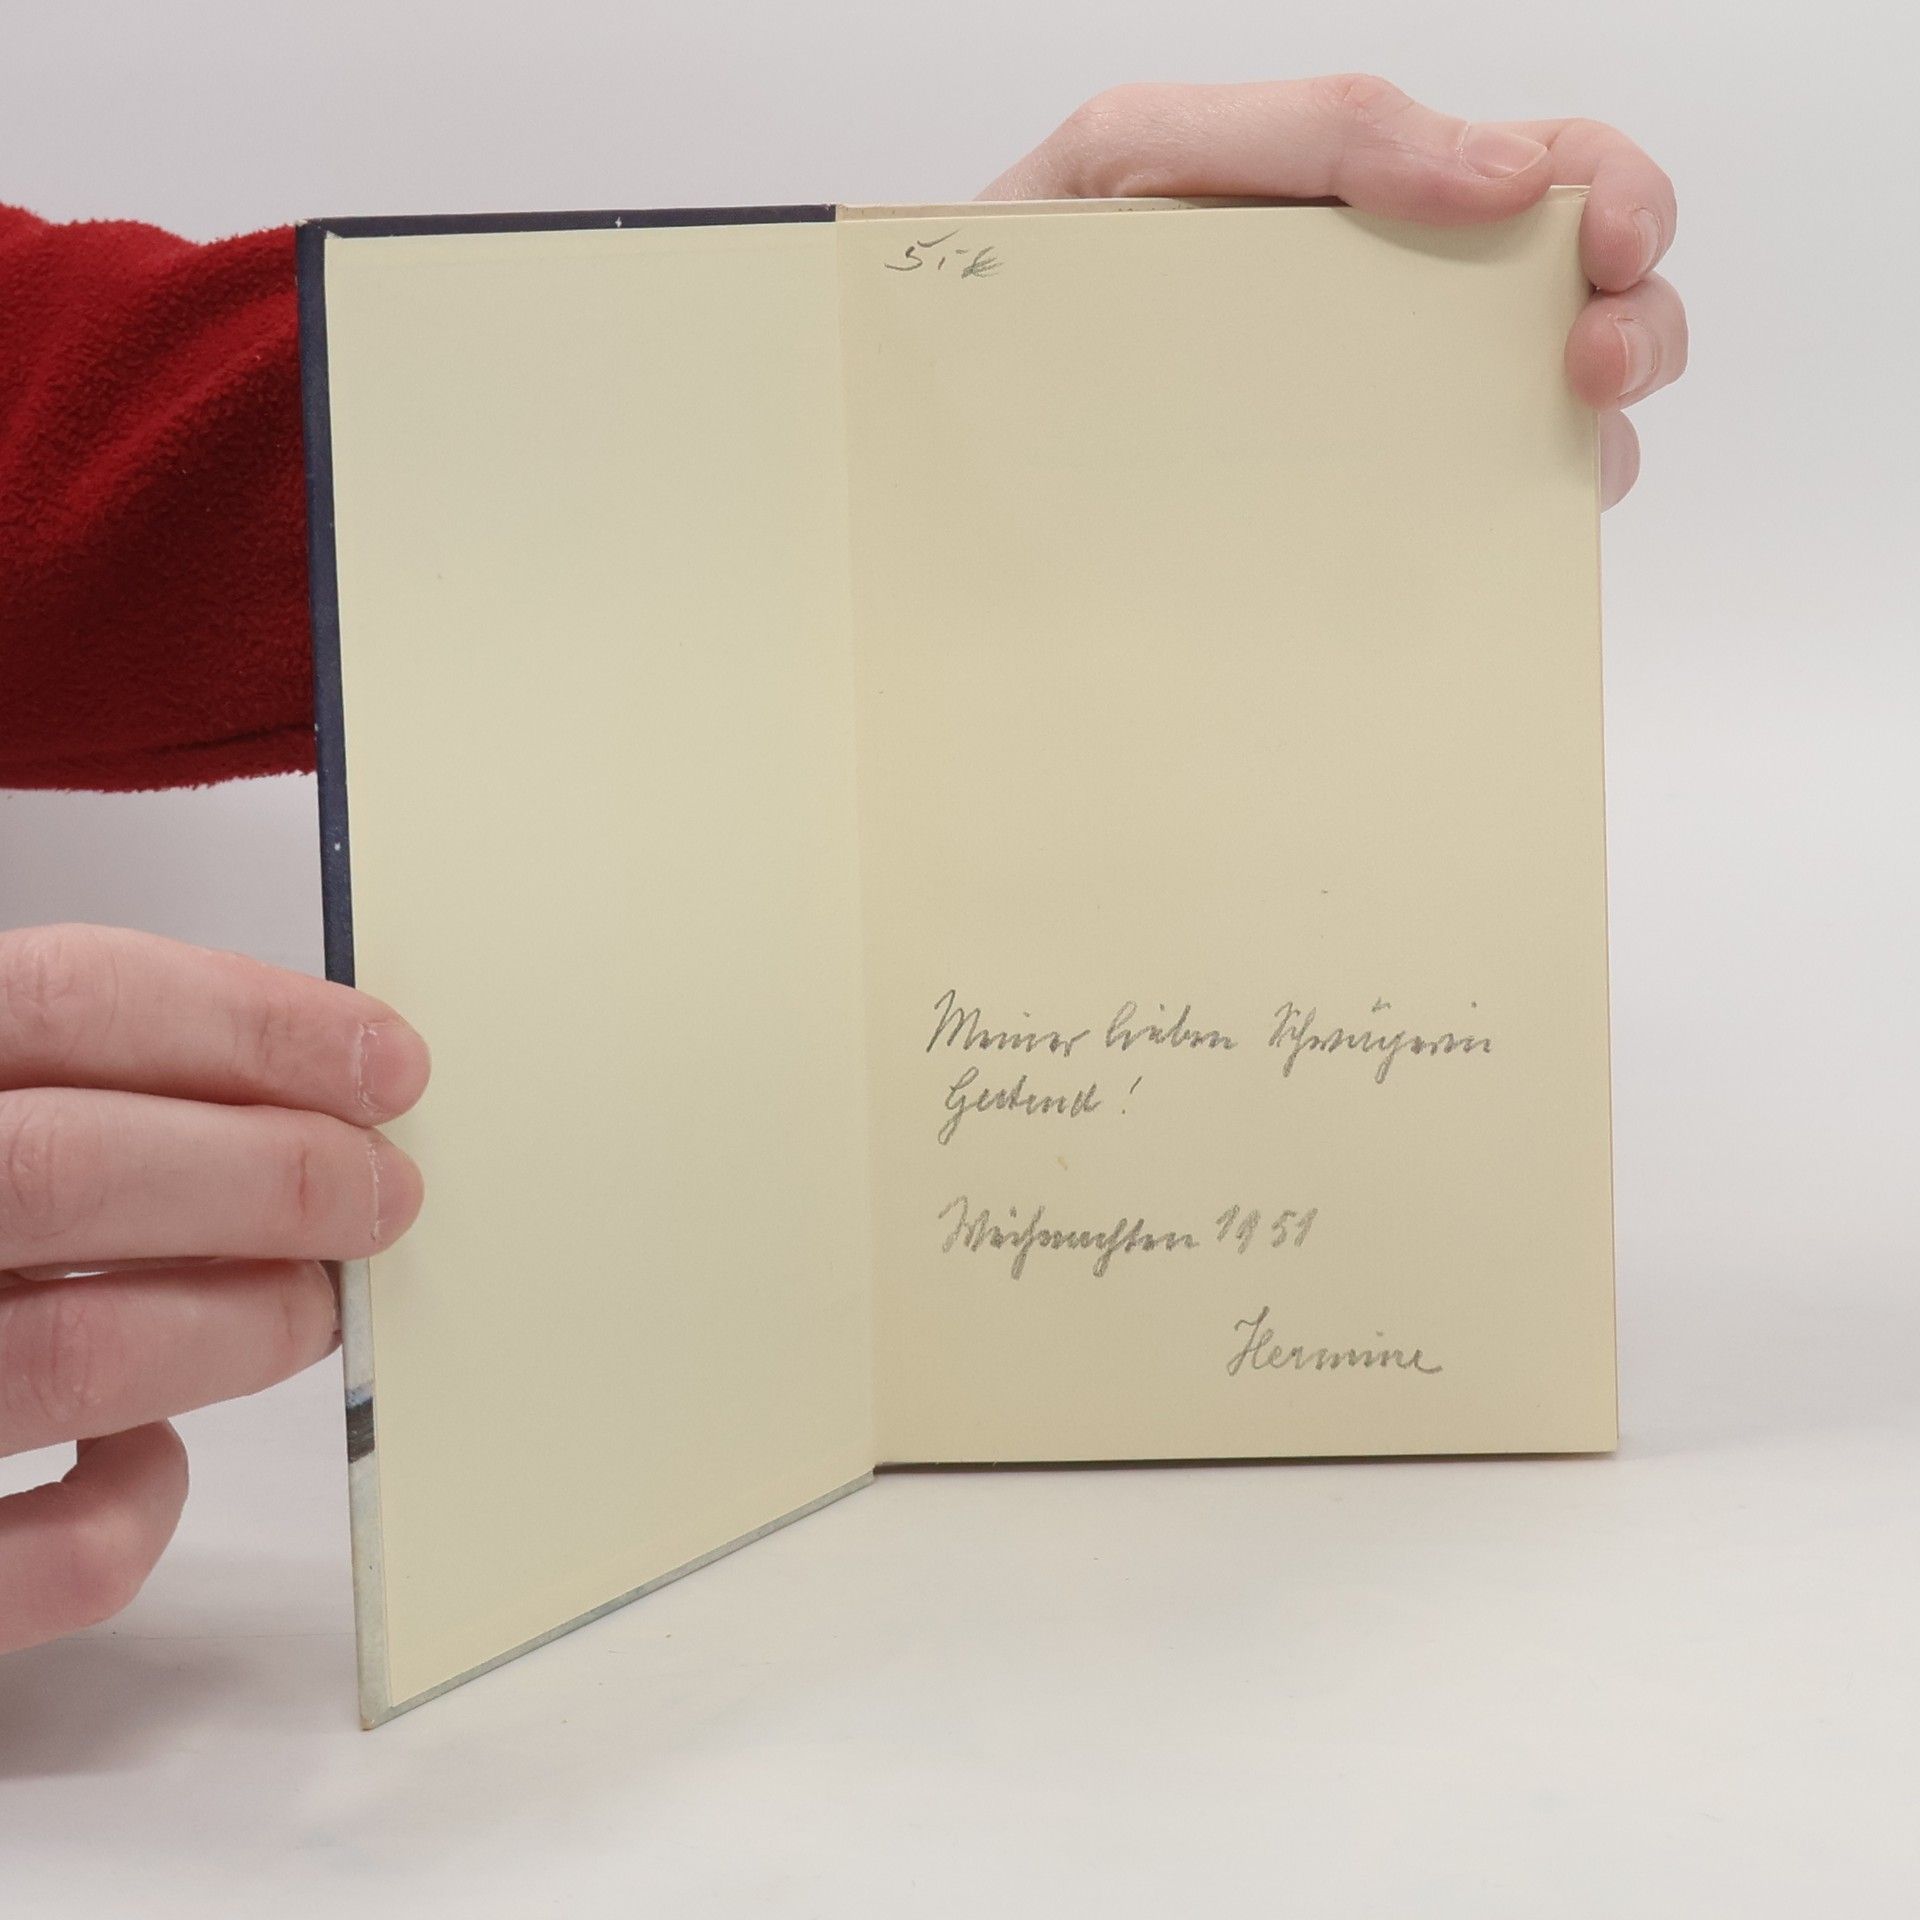 5,-
Meiner lieben Schwägerin
Gertrud!
Weihnachten 1951
Hermine